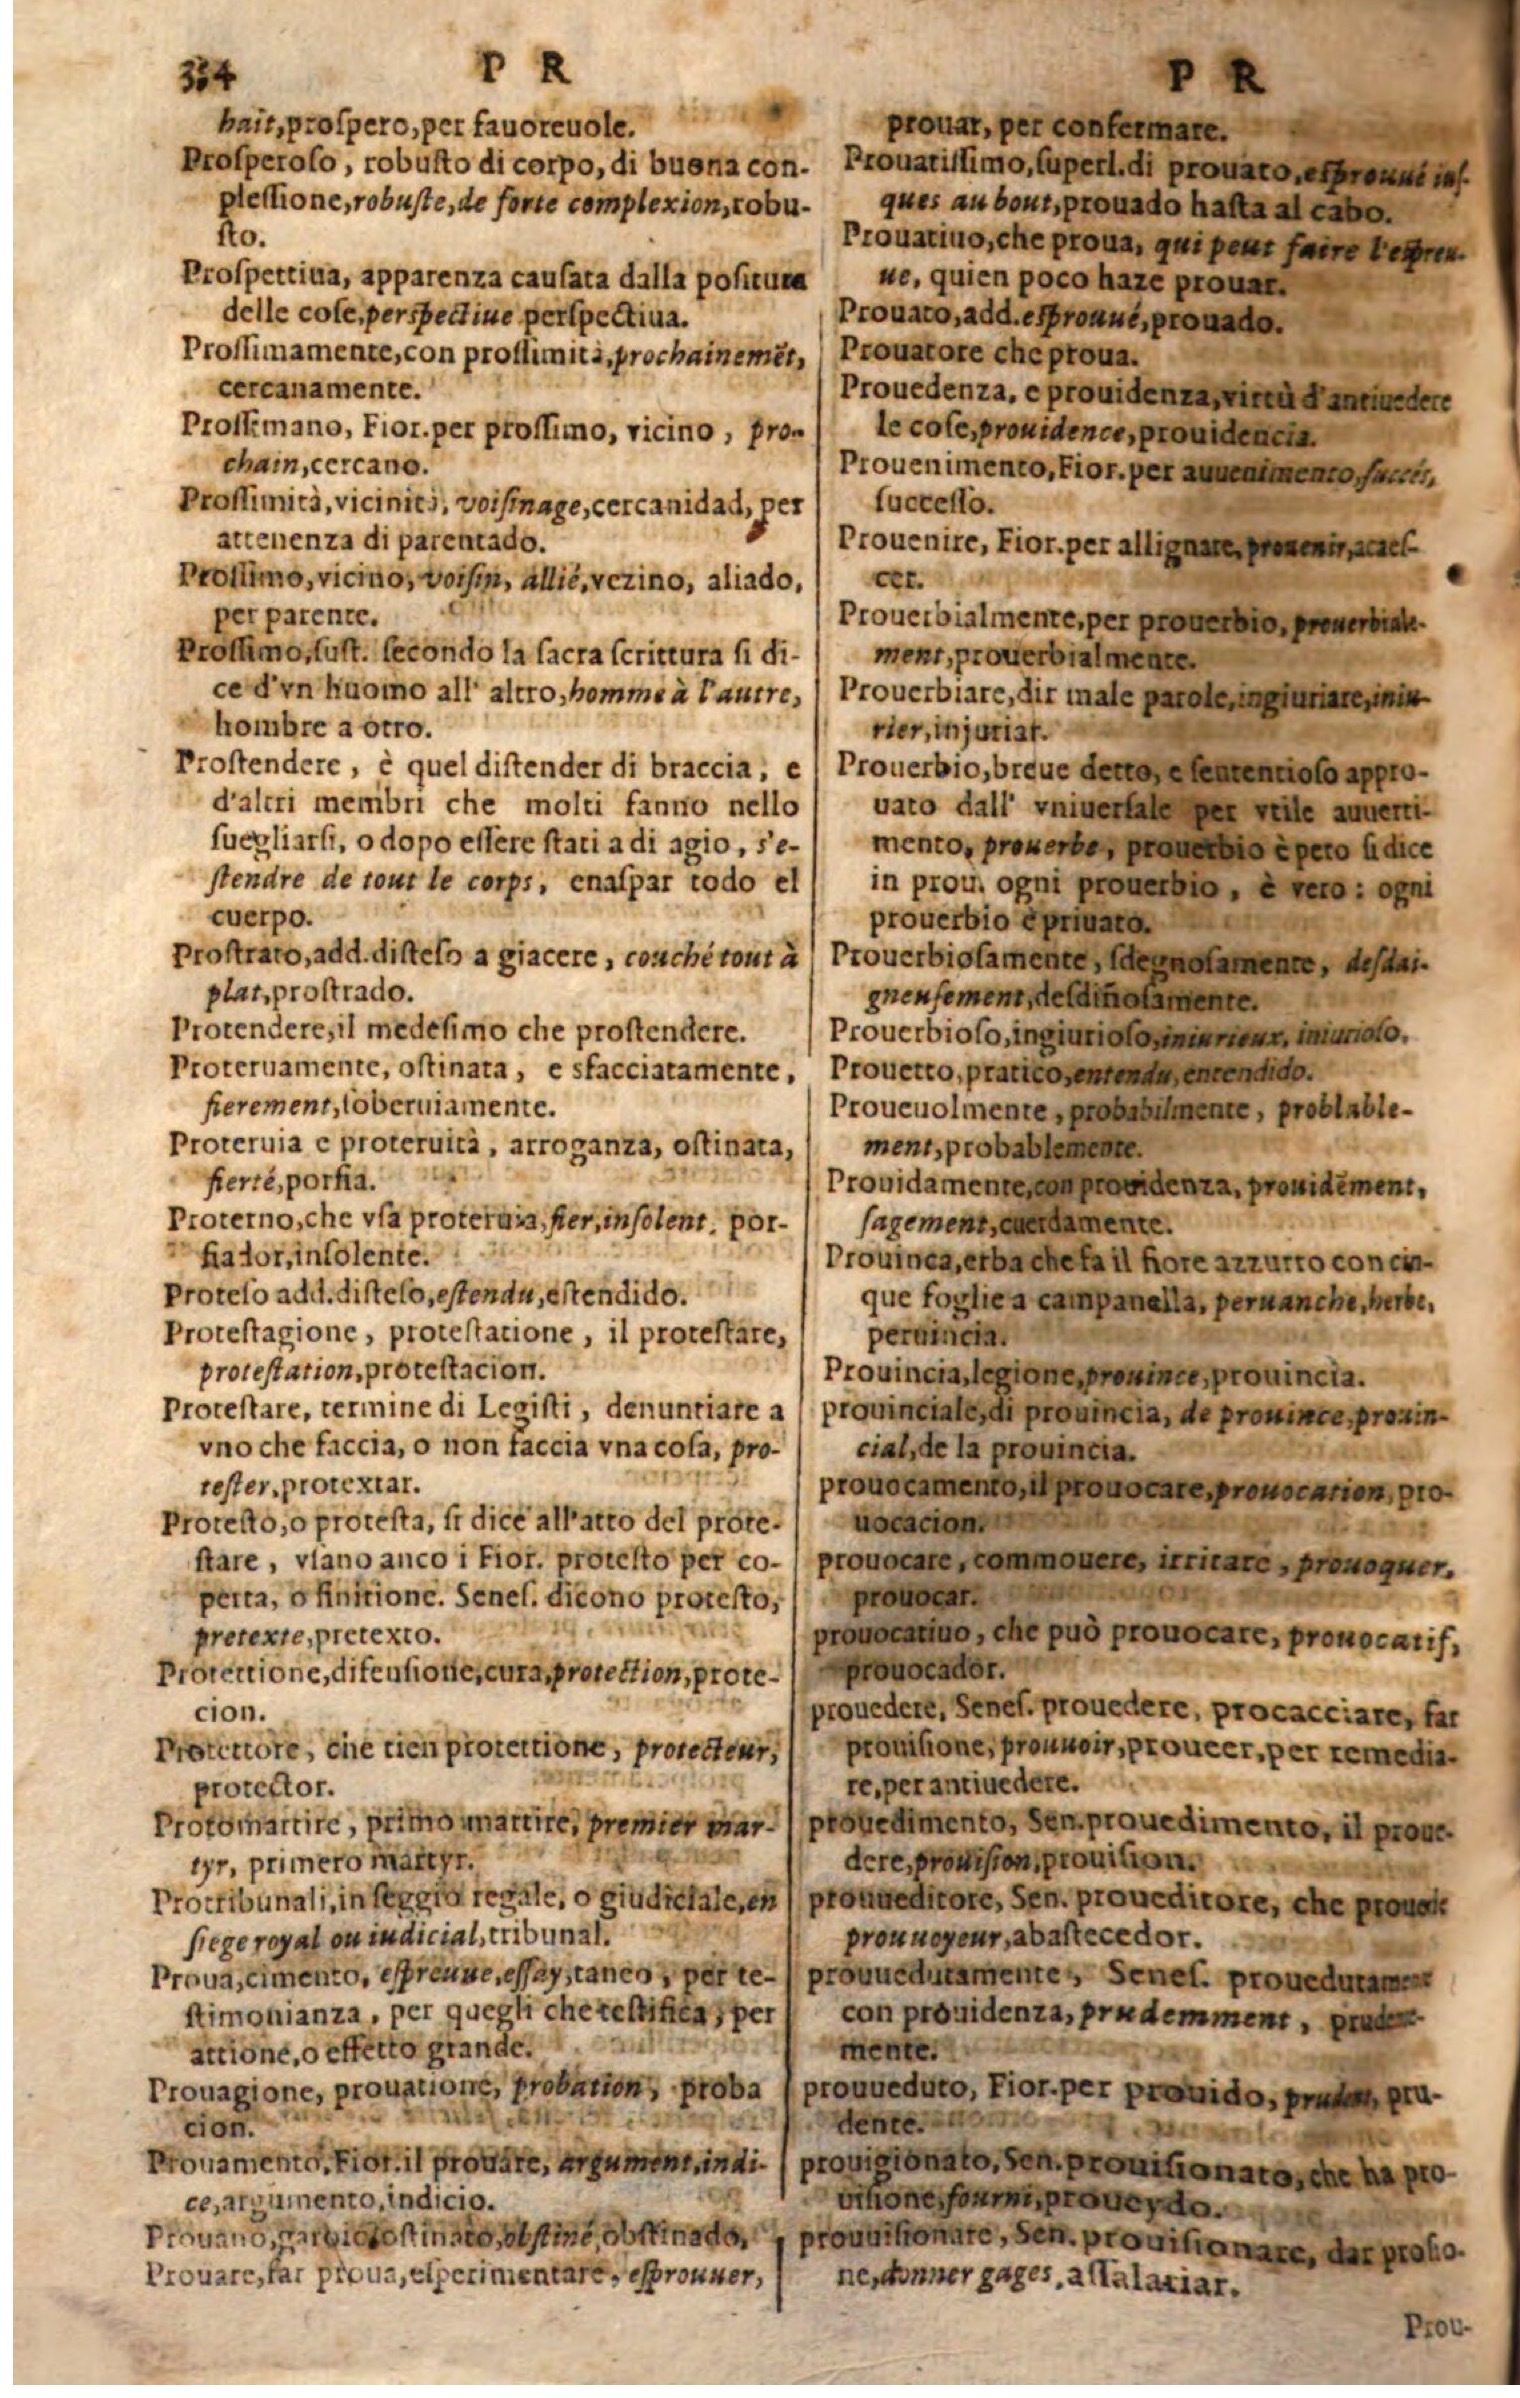 354
P R
hait,proſpero,per fauoreuole.
Proſperoſo, robuſto di corpo, di buona con-
pleſſione,robuſte,de forte complexion,robu-
ſto.
Proſpettiua, apparenza cauſata dalla poſitura
delle coſe,perſpectiue perſpectiua.
Proſſimamente,con proſſimità,prochainemẽt,
cercanamente.
Proſſimano, Fior.per proſſimo, vicino, pro-
chain,cercano.
Proſſimità,vicinità, voiſinage,cercanidad, per
attenenza di parentado.
Proſſimo,vicino, voiſin, allié,vezino, aliado,
per parente.
Proſſimo,ſuſt. ſecondo la ſacra ſcrittura ſi di-
ce d'vn huomo all' altro,homme à l'autre,
hombre a otro.
Proſtendere, è quel diſtender di braccia, e
d'altri membri che molti fanno nello
ſuegliarſi, o dopo eſſere ſtati a di agio, s'e-
ſtendre de tout le corps, enaſpar todo el
cuerpo.
Proſtrato,add.diſteſo a giacere, couché tout à
plat,proſtrado.
Protendere,il medeſimo che proſtendere.
Proteruamente, oſtinata, e sfacciatamente,
fierement,ſoberuiamente.
Proteruia e proteruità, arroganza, oſtinata,
fierté,porfia.
Proterno,che vſa proteruia,fier,inſolent, por-
fiador,inſolente.
Proteſo add.diſteſo,eſtendu,eſtendido.
Proteſtagione, proteſtatione, il proteſtare,
proteſtation,proteſtacion.
Proteſtare, termine di Legiſti, denuntiare a
vno che faccia, o non faccia vna coſa, pro-
teſter,protextar.
Proteſto,o proteſta, ſi dice all'atto del prote-
ſtare, vſano anco i Fior. proteſto per co-
perta, o finitione. Seneſ. dicono proteſto,
pretexte,pretexto.
Protettione,difenſione,cura,protection,prote-
cion.
Protettore, che tien protettione, protecteur,
protector.
Protomartire, primo martire, premier mar-
tyr, primero martyr.
Protribunali,in ſeggio regale, o giudiciale,en
ſiege royal ou iudicial,tribunal.
Proua,cimento, eſpreuue,eſſay,tanto, per te-
ſtimonianza, per quegli che teſtifica, per
attione,o effetto grande.
Prouagione, prouatione, probation, proba
cion.
Prouamento,Fior.il prouare, argument,indi-
ce,argumento,indicio.
Prouano, oſtinato,obſtiné,obſtinado,
Prouare,far proua,eſperimentare, eſprouuer,
P R
prouar, per confermare.
Prouatiſſimo,ſuperl.di prouato,eſprouué iuſ-
ques au bout,prouado haſta al cabo.
Prouatiuo,che proua, qui peut faire l'eſpreu-
ue, quien poco haze prouar.
Prouato,add.eſprouué,prouado.
Prouatore che proua.
Prouedenza, e prouidenza,virtù d'antiuedere
le coſe,prouidence,prouidencia.
Prouenimento,Fior.per auuenimento,ſuccés,
ſucceſſo.
Prouenire, Fior.per allignare,prouenir,acaeſ-
cer.
Prouerbialmente,per prouerbio,prouerbiale-
ment,prouerbialmente.
Prouerbiare,dir male parole,ingiuriare,iniu-
rier,injuriar.
Prouerbio,breue detto, e ſententioſo appro-
uato dall' vniuerſale per vtile auuerti-
mento, prouerbe, prouerbio è pero ſi dice
in prou. ogni prouerbio, è vero: ogni
prouerbio è priuato.
Prouerbioſamente, ſdegnoſamente, deſdai-
gneuſement,deſdiñoſamente.
Prouerbioſo,ingiurioſo,iniurieux, iniurioſo.
Prouetto,pratico,entendu,entendido.
Proueuolmente,probabilmente, problable-
ment,probablemente.
Prouidamente,con prouidenza, prouidẽment,
ſagement,cuerdamente.
Prouinca,erba che fa il fiore azzurro con cin-
que foglie a campanella, peruanche,herbe,
peruincia.
Prouincia,legione,prouince,prouincia.
prouinciale,di prouincia, de prouince,prouin-
cial,de la prouincia.
prouocamento,il prouocare,prouocation,pro-
uocacion.
prouocare, commouere, irritare, prouoquer,
prouocar.
prouocatiuo, che può prouocare, prouocatif,
prouocador.
prouedere, Seneſ. prouedere, procacciare, far
prouiſione, prouuoir,proueer,per remedia-
re,per antiuedere.
prouedimento, Sen.prouedimento, il proue-
dere,prouiſion,prouiſion.
prouueditore, Sen. proueditore, che prouede
prouuoyeur,abaſtecedor.
prouuedutamente, Seneſ. prouedutamente
con prouidenza,prudemment, prudente-
mente.
prouueduto, Fior.per prouido,prudent, pru-
dente.
prouigionato, Sen.prouiſionato,che ha pro-
uiſione,fourni,proueydo.
prouuiſionare, Sen. prouiſionare, dar
ne,donner gages,aſſalariar.
Prou-